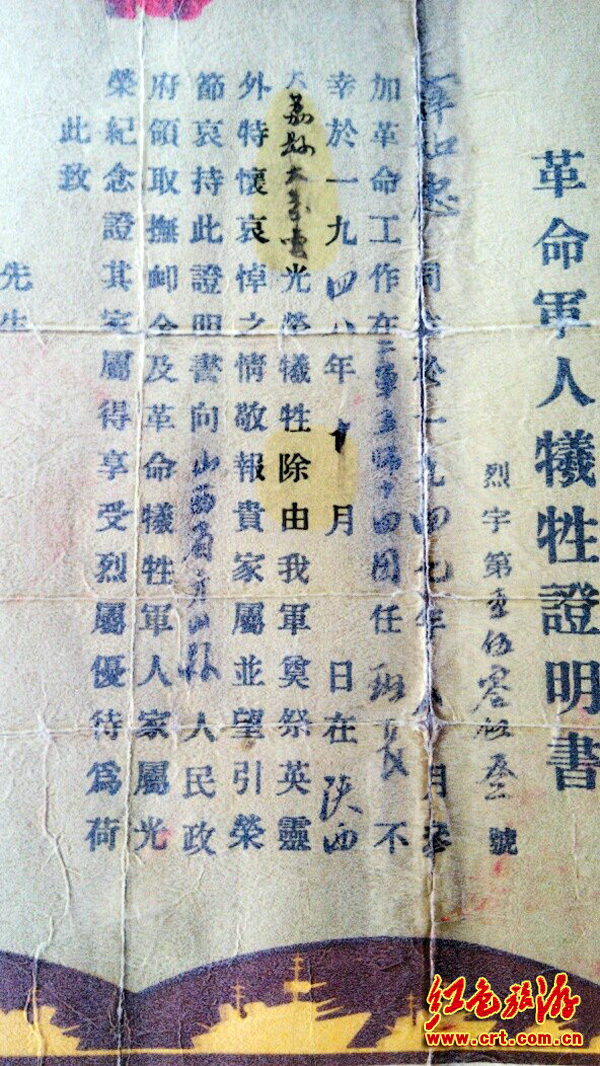 革命軍人犧牲證明書
烈字第壹伍零號
忠同志於一九四七年八月參
加革命工作在二軍五師十四團任班長不
幸於一九四八年十月 日在陝西
大荔縣大光榮犧牲除由我軍奠祭英靈
外特懷哀悼之情敬報貴家屬並望引榮
節哀持此證明書向山西省方山縣人民政
府領取撫卹金及革命犧牲軍人家屬光
榮紀念證其家屬得享受烈屬優待爲荷
此致
先生
红色旅游
www.crt.com.cn